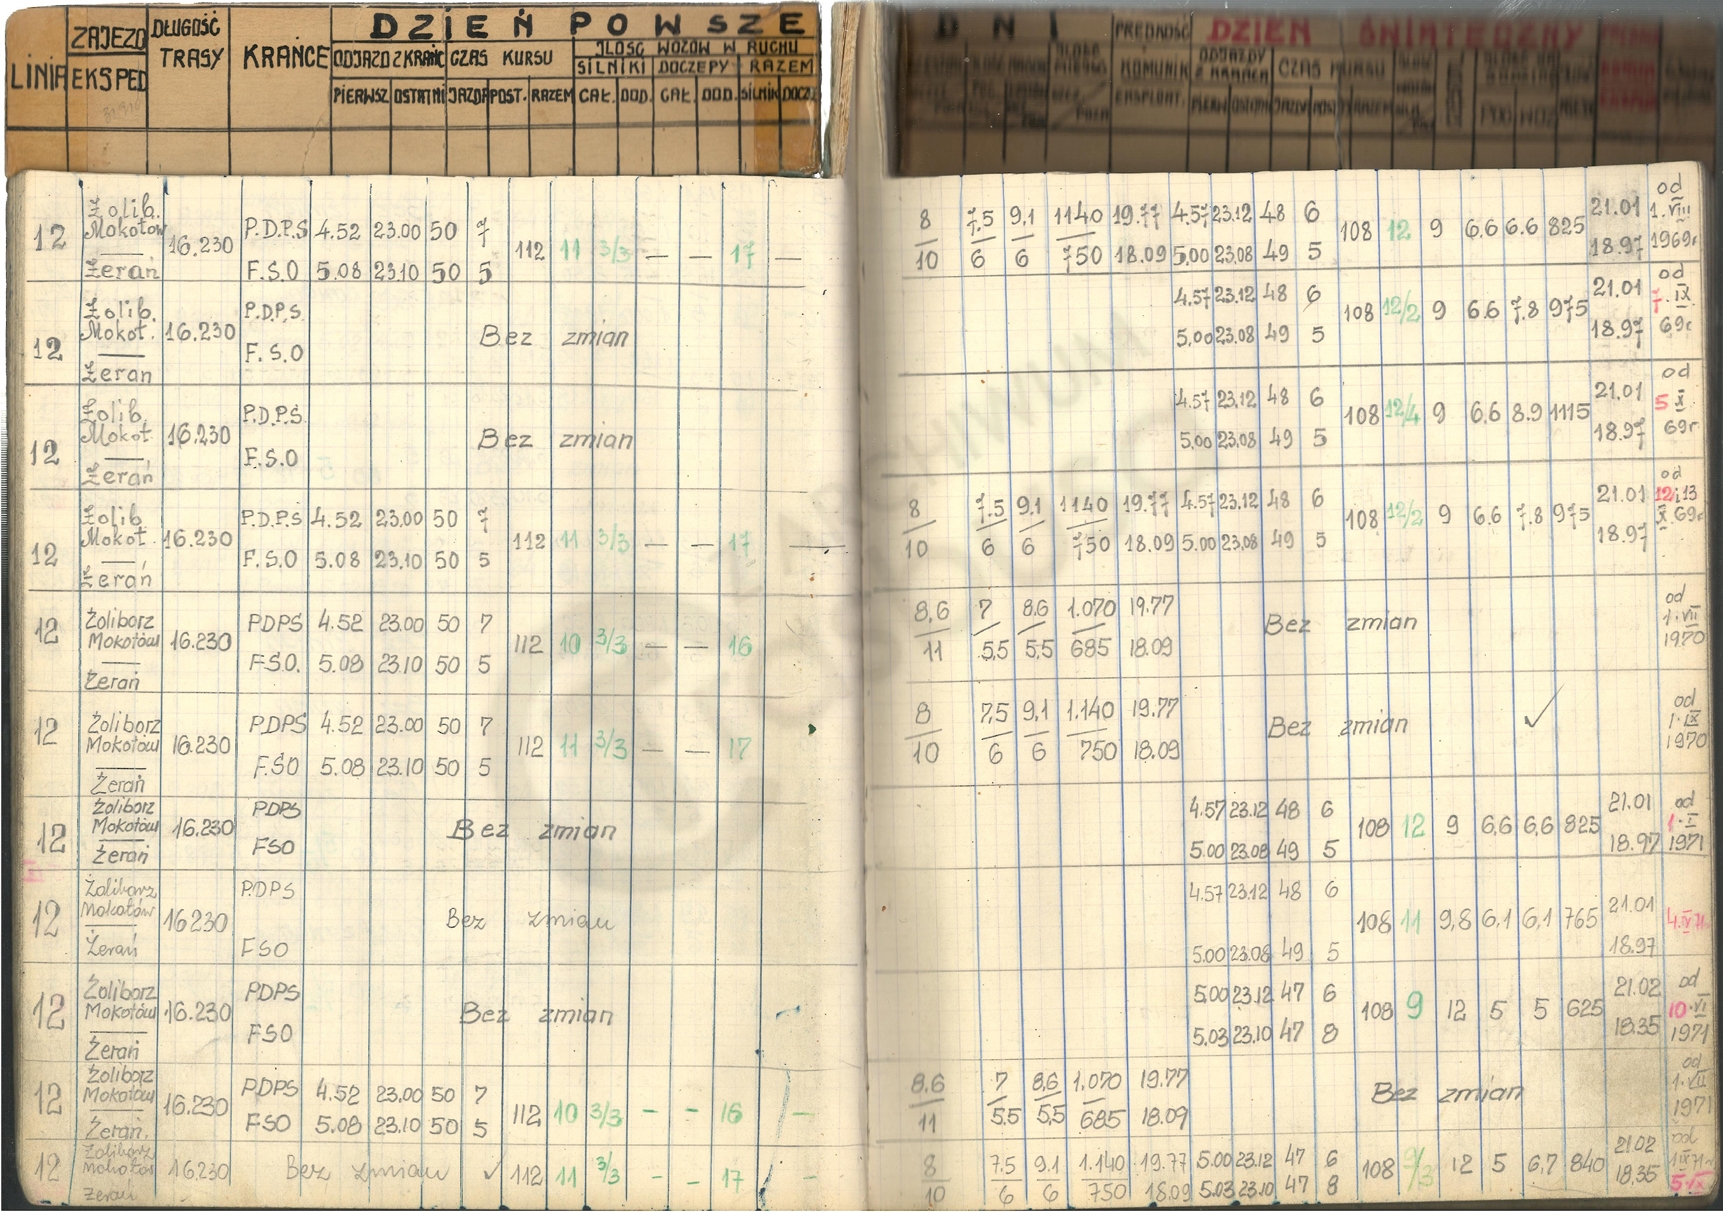 DZIEŃ POWSZE
DNI
DZIEŃ ŚWIĄTECZNY
LINIA ZAJEZD EKSPED DŁUGOŚĆ TRASY KRAŃCE
ODJAZD Z KRAŃC CZAS KURSU ILOŚĆ WOZÓW W RUCHU
SILNIKI DOCZEPY RAZEM
PIERWSZ OSTATNI JAZDA POST. RAZEM CAŁ. DOD. CAŁ. DOD. SILNIK DOCZ.
PRĘDKOŚĆ KOMUNIK EKSPLOAT. ODJAZDY Z KRAŃCA CZAS KURSU
Żolib. od
12 Mokotow 16.230 P.D.P.S 4.52 23.00 50 7 112 11 3/3 — — 17 — 8 7,5 9,1 1140 19.77 4.57 23.12 48 6 108 12 9 6,6 6.6 825 21.01 1.VIII
Żerań F.S.O 5.08 23.10 50 5 10 6 6 750 18.09 5.00 23.08 49 5 18.97 1969r
Żolib. P.D.P.S. 4.57 23.12 48 6 21.01 od
12 Mokot. 16.230 Bez zmian 108 12/2 9 6.6 7.8 975 7.IX
Żerań F.S.O 5.00 23.08 49 5 18.97 69r
Żolib. P.D.P.S. 4.57 23.12 48 6 21.01 od
12 Mokot. 16.230 Bez zmian 108 12/4 9 6,6 8.9 1115 5 X
Żerań F.S.O 5.00 23.08 49 5 18.97 69r
Żolib P.D.P.S 4.52 23.00 50 7 8 7.5 9.1 1140 19.77 4.57 23.12 48 6 21.01 od
12 Mokot. 16.230 112 11 3/3 — — 17 — 108 12/2 9 6.6 7.8 975 12 i 13
Żerań F.S.O 5.08 23.10 50 5 10 6 6 750 18.09 5.00 23.08 49 5 18.97 X.69r
Żoliborz PDPS 4.52 23.00 50 7 8,6 7 8,6 1.070 19.77 od
12 Mokotów 16.230 112 10 3/3 — — 16 Bez zmian 1.VII
Żerań FSO. 5.08 23.10 50 5 11 5,5 5,5 685 18.09 1970
Żoliborz PDPS 4.52 23.00 50 7 8 7,5 9,1 1.140 19.77 od
12 Mokotów 16.230 112 11 3/3 — — 17 Bez zmian 1.IX
Żerań F.SO 5.08 23.10 50 5 10 6 6 750 18.09 1970
Żoliborz PDPS 4.57 23.12 48 6 21.01 od
12 Mokotów 16.230 Bez zmian 108 12 9 6,6 6,6 825 1.I
Żerań FSO 5.00 23.08 49 5 18.97 1971
Żoliborz P.DPS 4.57 23.12 48 6 21.01
12 Mokotów 16230 Bez zmian 108 11 9,8 6,1 6,1 765 4.IV 71
Żerań FSO 5.00 23.08 49 5 18.97
Żoliborz PDPS 5.00 23.12 47 6 21.02 od
12 Mokotów 16.230 Bez zmian 108 9 12 5 5 625 10.VI
Żerań FSO 5.03 23.10 47 8 18.35 1971
Żoliborz PDPS 4.52 23.00 50 7 8,6 7 8,6 1.070 19.77 od
12 Mokotów 16.230 112 10 3/3 — — 16 — Bez zmian 1.VII
Żerań. FSO 5.08 23.10 50 5 11 5.5 5,5 685 18.09 1971
Żoliborz 8 7.5 9.1 1.140 19.77 5.00 23.12 47 6 21.02 od
12 Mokotów 16.230 Bez zmian 112 11 3/3 — — 17 — 108 9/3 12 5 6,7 840
Żerań 10 6 6 750 18.09 5.03 23.10 47 8 18.35